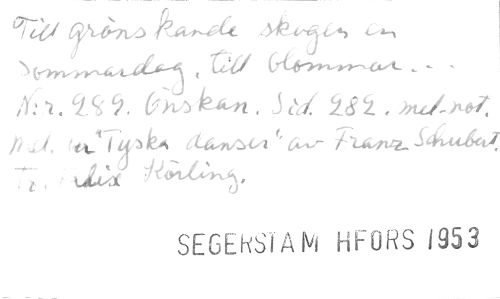 Till grönskande skogen en
sommardag, till blommor...
N:r. 289. Önskan. Sid. 282. mel-not.
Mel. ur "Tyska danser" av Franz Schubert.
Tr. Felix Körling.
SEGERSTAM HFORS 1953